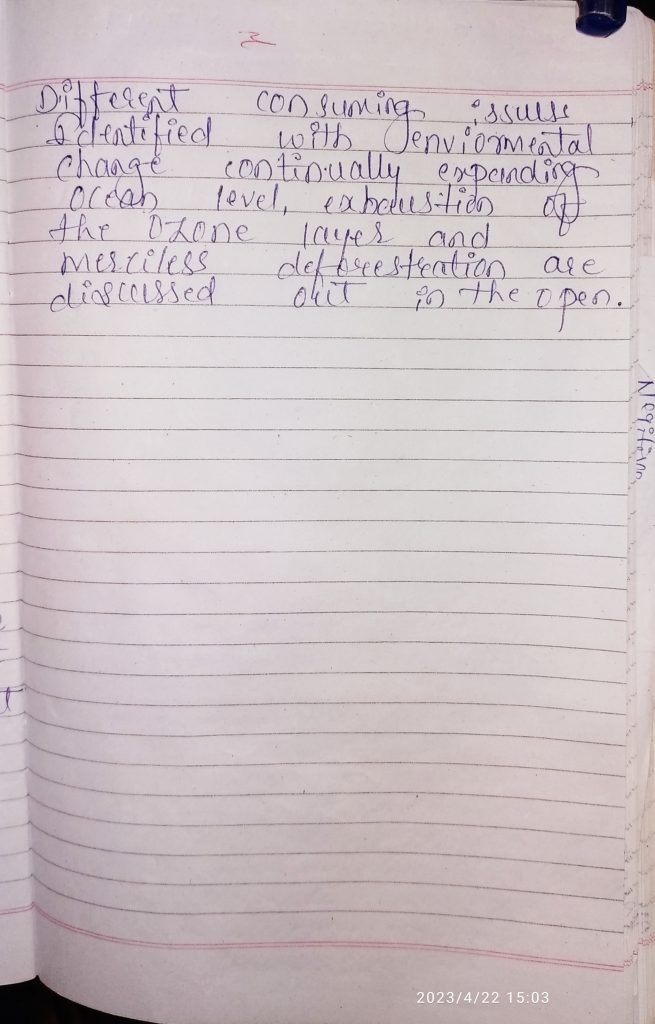 3
Different consuming issues
Identified with enviormental
change continually expanding
ocean level, exhaustion of
the Ozone layer and
merciless deforestreation are
discussed out in the open.
2023/4/22 15:03